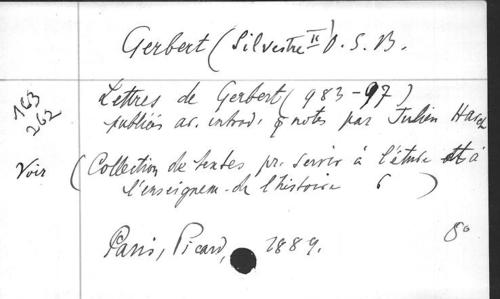 Gerbert (Silvestre II) O. S. B.
163
262
Lettres de Gerbert (983-97)
publiés av. introd. & notes par Julien Havet
Voir (Collection de textes pr. servir à l'étude et à
l'enseignem. de l'histoire 6)
Paris, Picard, 1889.
8°